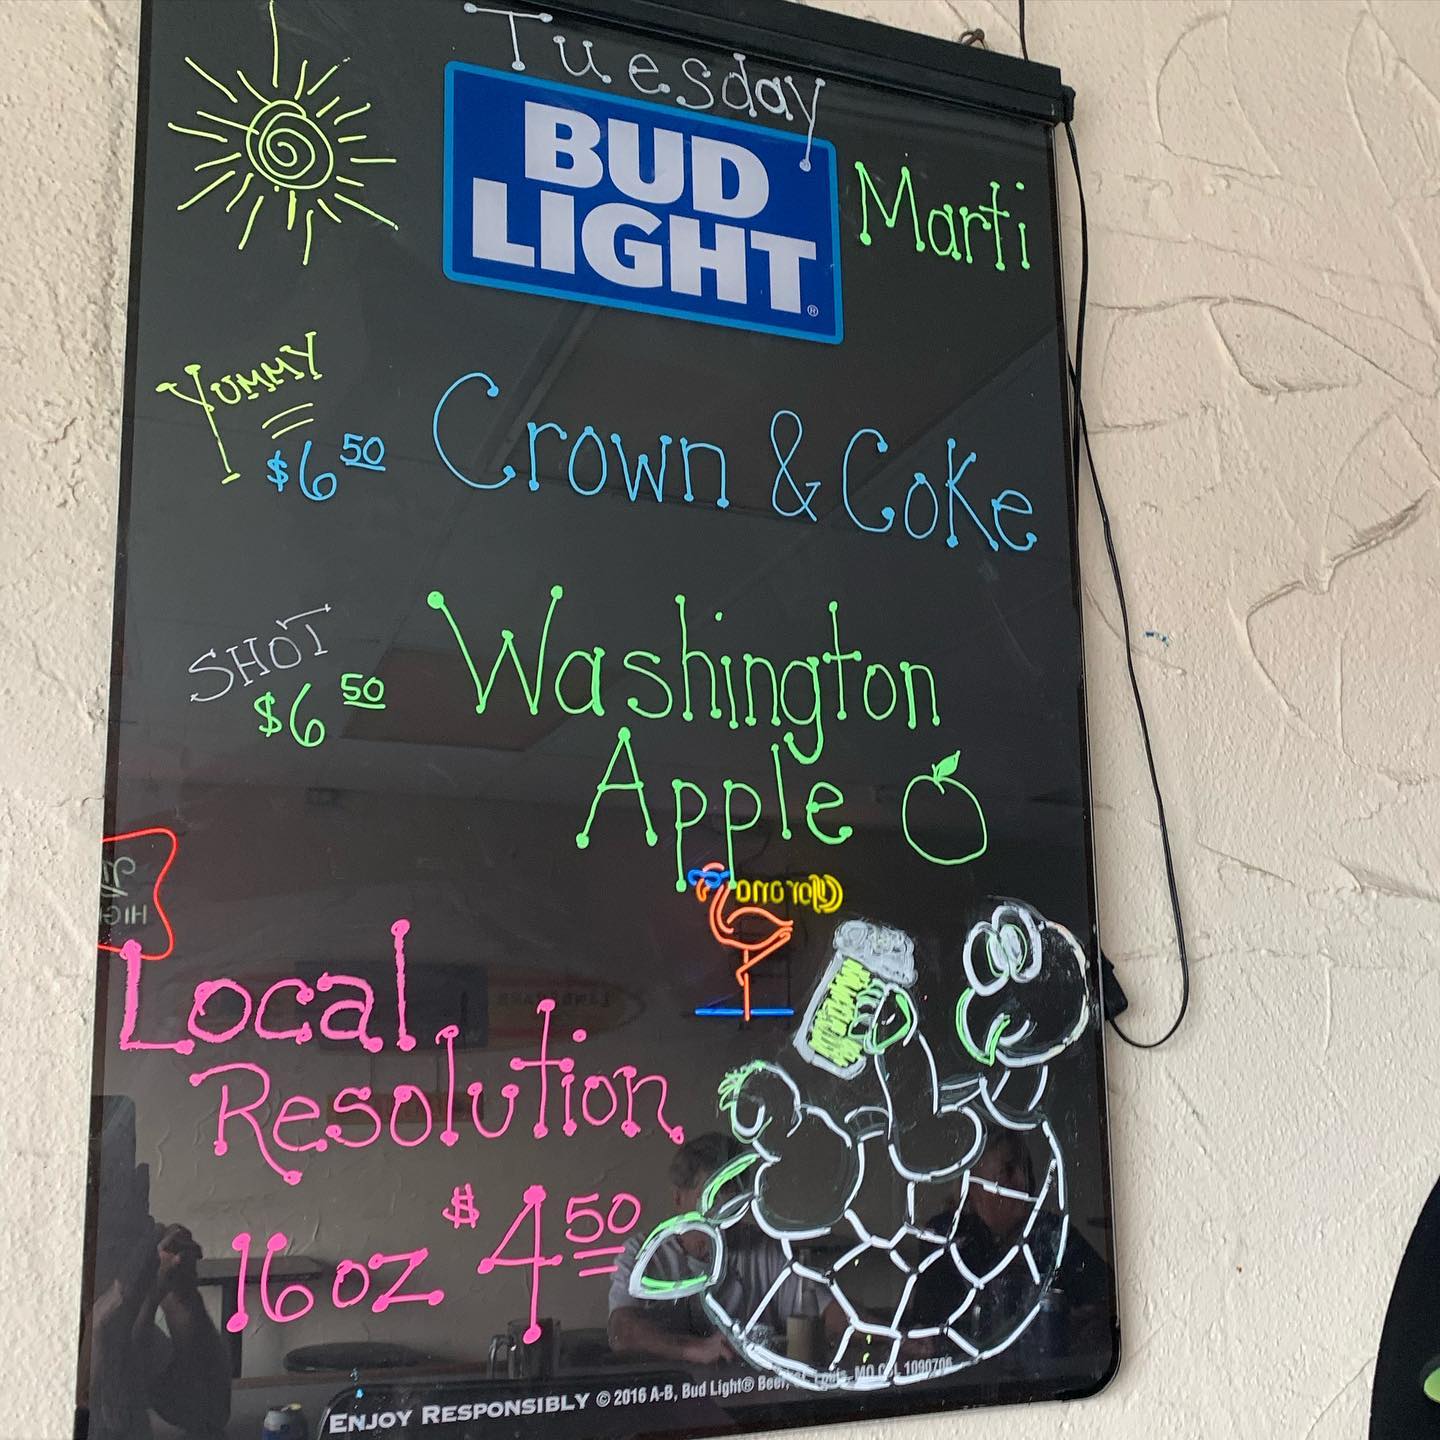 Tuesday
BUD
LIGHT®
Marti
YUMMY
$6 50
Crown & Coke
SHOT
$6 50
Washington
Apple
Corona
HIGH
Local
Resolution
16 oz $4 50
ENJOY RESPONSIBLY © 2016 A-B, Bud Light® Beer, St. Louis, MO CSL 1090706